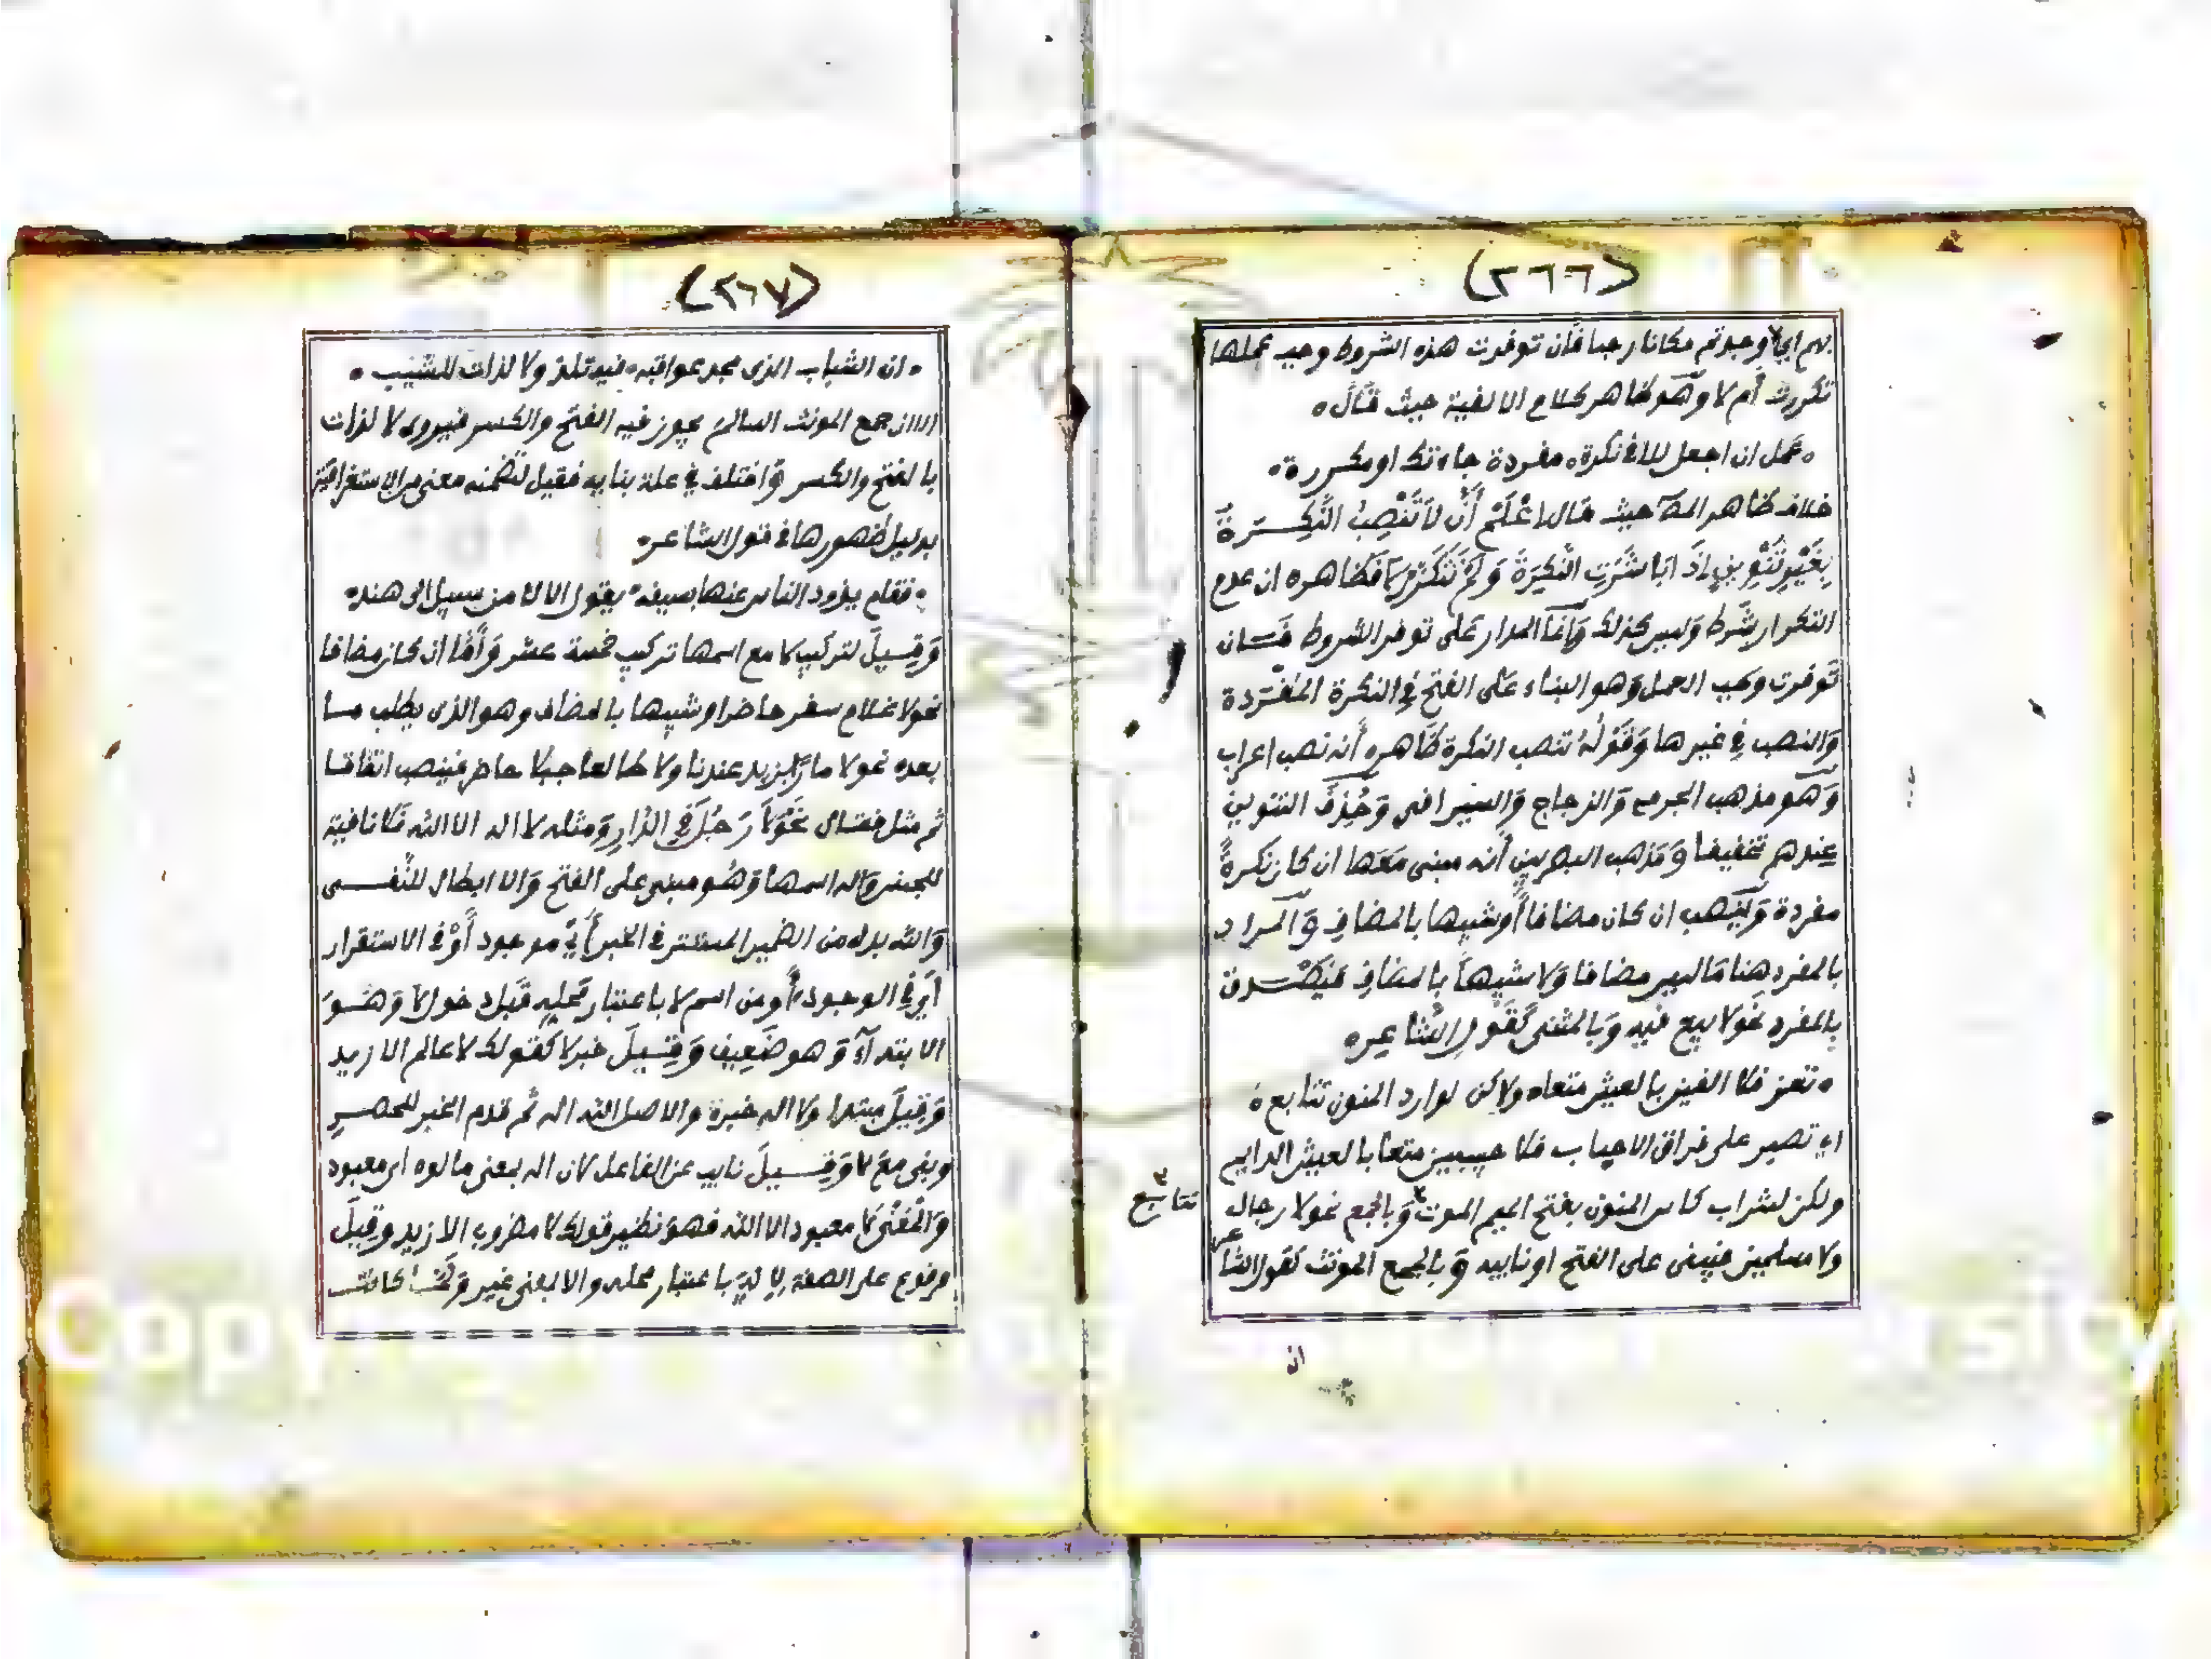 (٢٦٦)
بهم اي وجدتم مكانا رحبا فان توفرت هذه الشروط وجب عملها
تكررت أم لا وهو ظاهر كلام الالفية حيث قال
عمل ان اجعل للا في نكرة مفردة جاءتك او مكررة
خلاف ظاهر المص حيث قال اعْلَمْ أَنَّ لَا تَنْصِبُ النَّكِرَةَ
بِغَيْرِ تَنْوِينٍ إِذَا بَاشَرَتِ النَّكِرَةَ وَلَمْ تَتَكَرَّرْ لَا فظاهره ان عدم
التكرار شرط وليس كذلك وانما المدار على توفر الشروط فان
توفرت وجب العمل وهو البناء على الفتح في النكرة المفردة
والنصب في غيرها وقوله تنصب النكرة ظاهره أنه نصب اعراب
وهو مذهب الجرمي والزجاج والسيرافي وحذف التنوين
عندهم تخفيفا ومذهب البصريين أنه مبنى معها ان كان نكرة
مفردة وينصب ان كان مضافا أو شبيها بالمضاف والمراد
بالمفرد هنا ما ليس مضافا ولا شبيها بالمضاف فيصدق
بالمفرد نحو لا بيع فيه وبالمثنى كقول الشاعر
تعز فلا الفين بالعيش متعاه ولاكن لوارد المنون تتابع
اي تصبر على فراق الاحباب فلا حبيبين متعا بالعيش الدايم
ولكن لشراب كاس المنون بفتح الميم الموت وبالجمع نحو لا رجال
تتابع
ولا مسلمين فيبنى على الفتح او نايبه وبالجمع المونث كقول الشاعر
ان
(٢٦٧)
ان الشباب الذى مجد عواقبه فيه نلذ ولا لذات للشيب
الا ان جمع المونث السالم يجوز فيه الفتح والكسر فيروى لا لذات
بالفتح والكسر واختلف في علة بنايه فقيل لتضمنه معنى من الاستغراقية
بدليل ظهورها في قول الشاعر
فقام يذود الناس عنها بسيفه يقول الا لا من سبيل الى هند
وقيل لتركيب لا مع اسمها تركيب خمسة عشر وأما ان كان مضافا
نحو لا غلام سفر حاضر او شبيها بالمضاف وهو الذى يطلب ما
بعده نحو لا مارًا بزيد عندنا ولا طالعا جبلا حاضر فينصب اتفاقا
ثم مثل فقال نَحْوَ لَا رَجُلَ فِي الدَّارِ ومثله لا اله الا الله فلا نافية
للجنس واله اسمها وهو مبنى على الفتح والا ابطال للنفى
والله بدل من الضمير المستتر في الخبر أي موجود أو في الاستقرار
أي في الوجود أو من اسم لا باعتبار محله قبل دخول لا وهو
الابتداء وهو ضعيف وقيل خبر لا كقولك لا عالم الا زيد
وقيل مبتدا ولا اله خبره والاصل الله اله ثم قدم الخبر للحصر
وبنى مع لا وقيل نايب عن الفاعل لان اله بمعنى مالوه اى معبود
والمعنى لا معبود الا الله فهو نظير قولك لا مضروب الا زيد وقيل
مرفوع على الصفة لاله باعتبار محله والا بمعنى غير ولما كانت